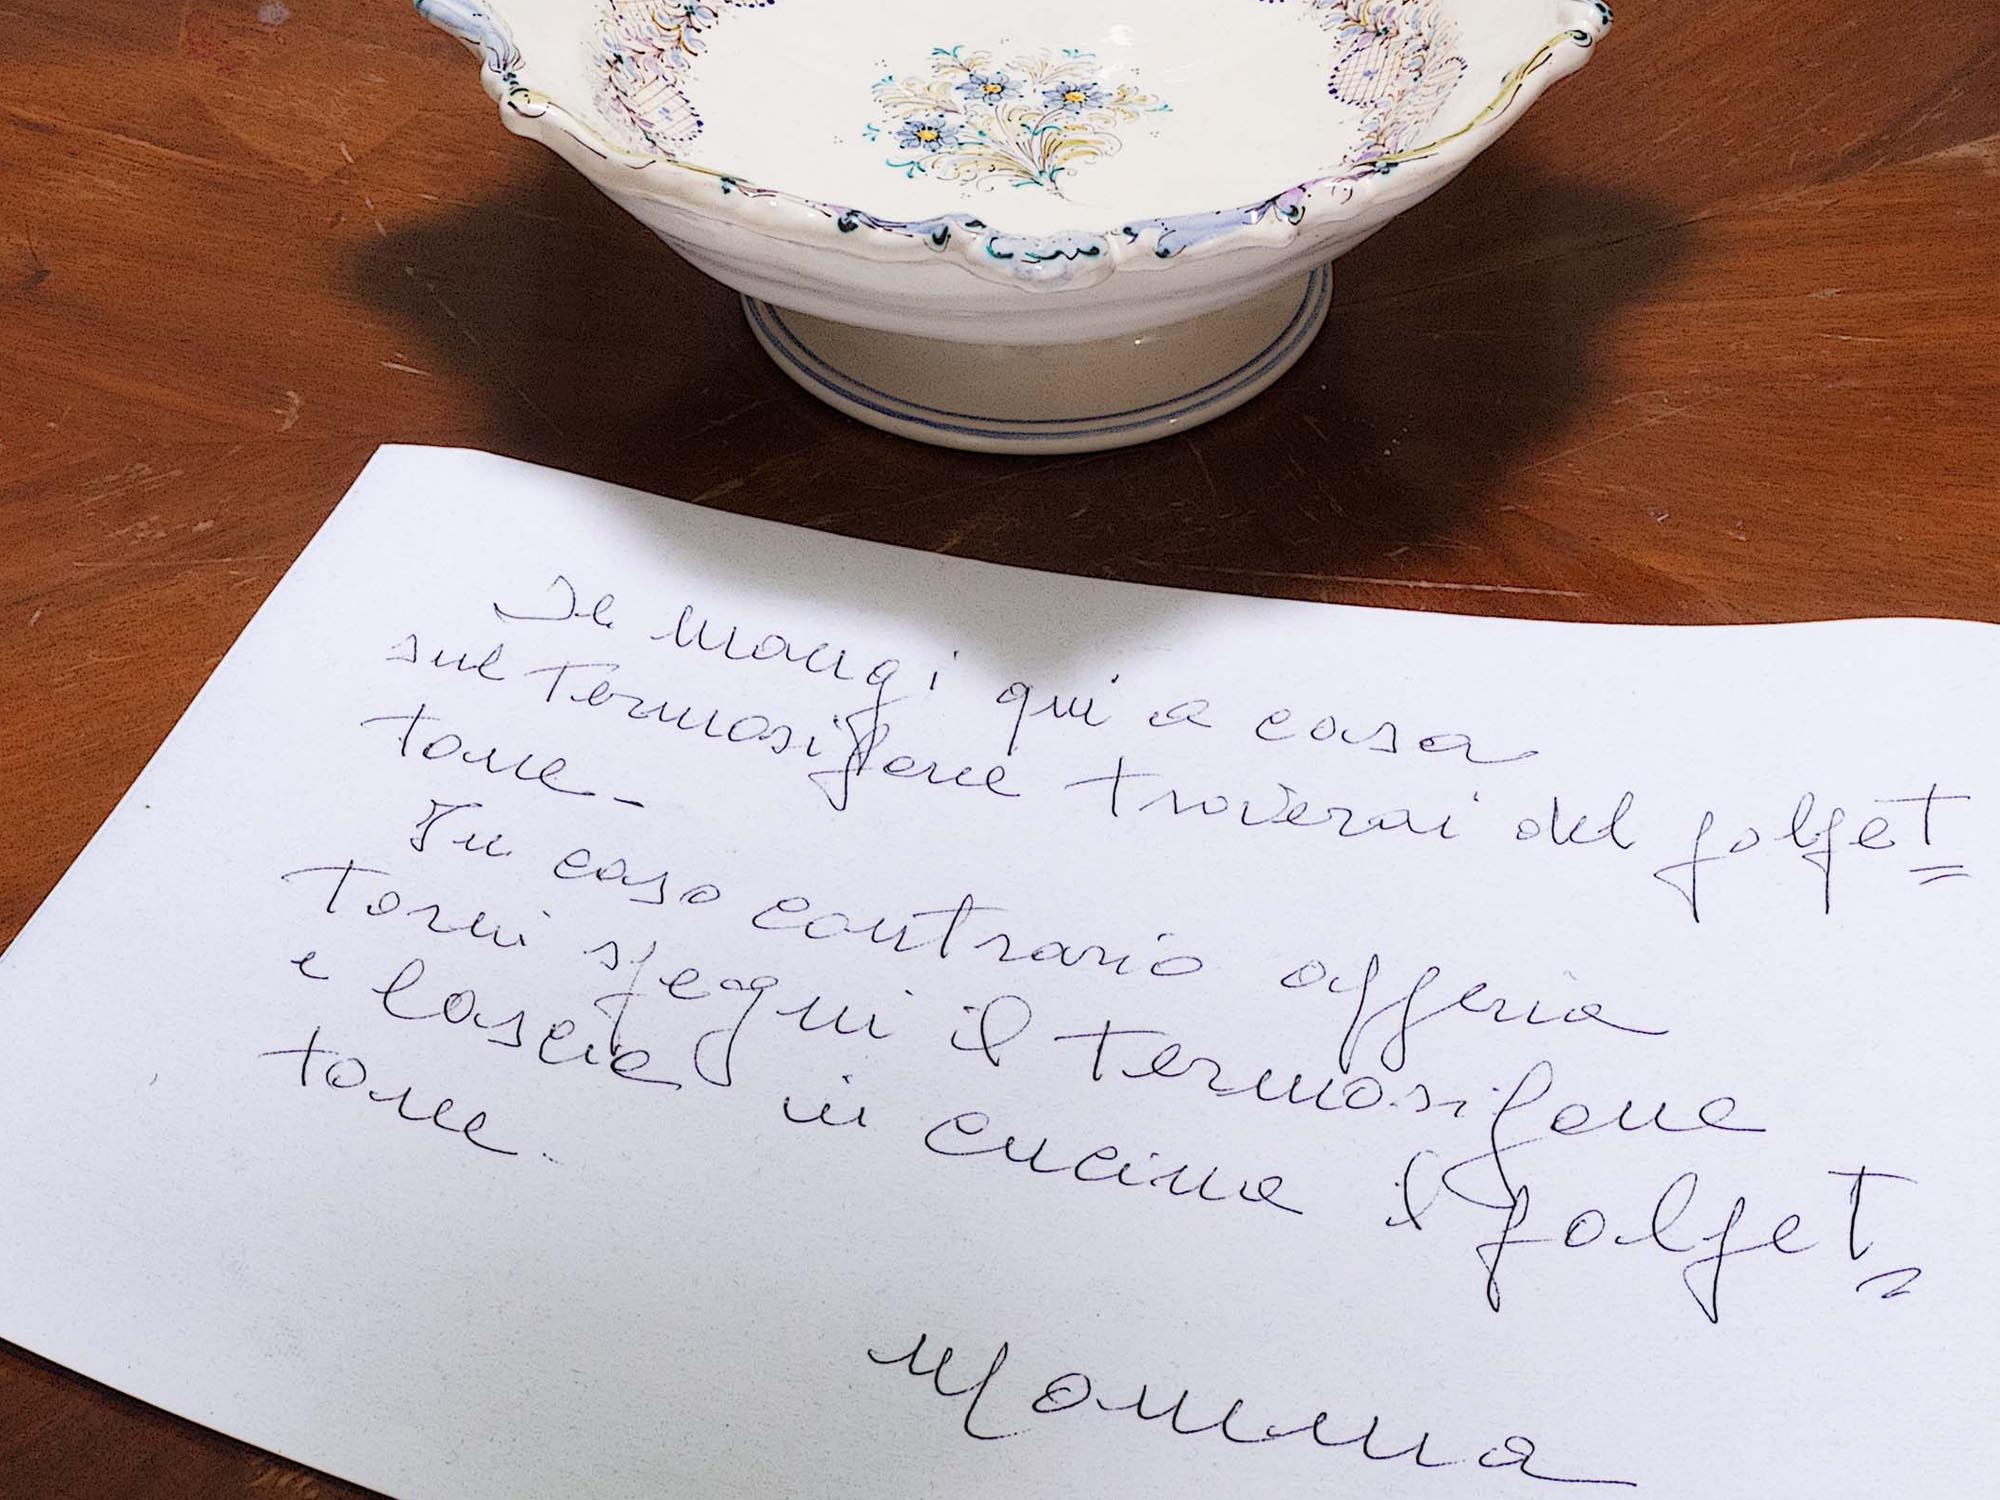 Se mangi qui a casa
sul termosifone troverai del polpet=
tone -
In caso contrario appena
torni spegni il termosifone
e lascia in cucina il polpet=
tone.
Mamma